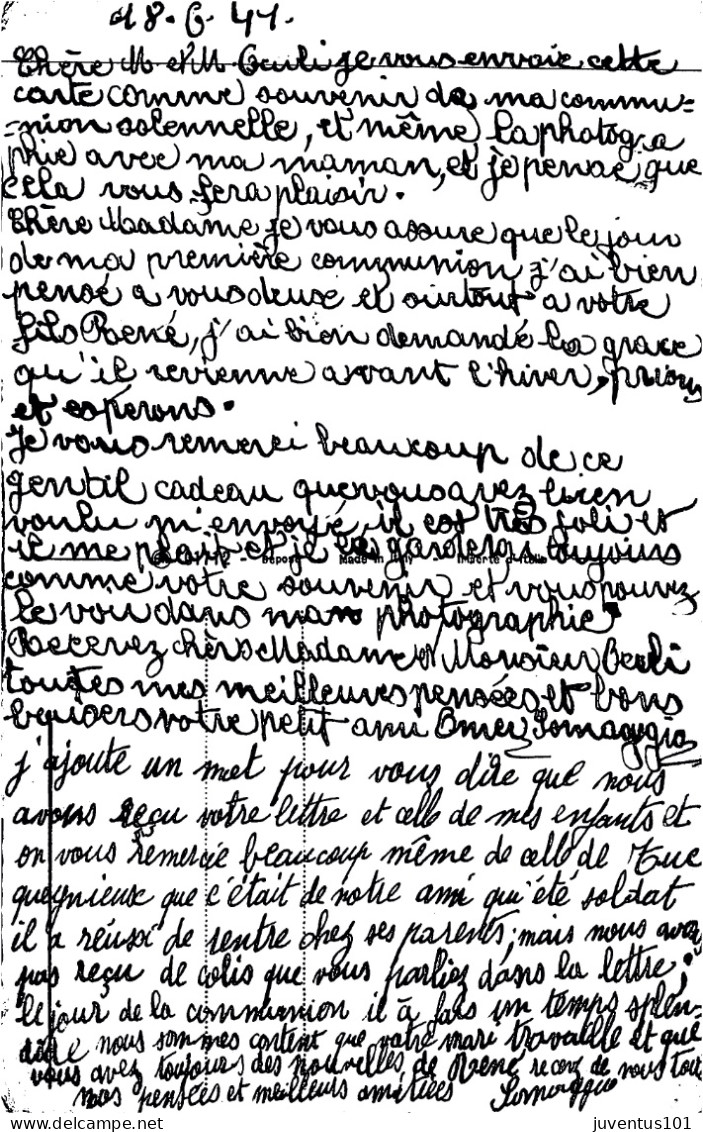 18.6.41.
Chère M et M Beuli je vous envoie cette
carte comme souvenir de ma commu=
=nion solennelle, et même la photogra
phie avec ma maman, et je pense que
cela vous fera plaisir.
Chère Madame je vous assure que le jour
de ma première communion j'ai bien
pensé a vous deux et surtout a votre
fils René, j'ai bien demandé la grace
qu'il revienne avant l'hiver, prions
et esperons.
Je vous remerci beaucoup de ce
gentil cadeau que vous avez bien
voulu m'envoyé, il est très joli et
il me plait et je le garderai toujours
Made in Italy
comme votre souvenir et vous pouvez
le voir dans ma photographie.
Recevez chère Madame et Monsieur Beuli
toutes mes meilleures pensées et bons
beisers votre petit ami Omer Somaggio
j'ajoute un mot pour vous dire que nous
avons reçu votre lettre et celle de mes enfants et
on vous remercie beaucoup même de celle de
que c'était de notre ami qui été soldat
il a réussi de rentre chez ses parents; mais nous avez
pas reçu de colis que vous parliez dans la lettre;
le jour de la communion il à fais un temps splen=
dide nous sommes content que votre mari travaille et que
vous avez toujours des nouvelles de René recevez de nous tous
nos pensées et meilleurs amitiées Somaggio
juventus101